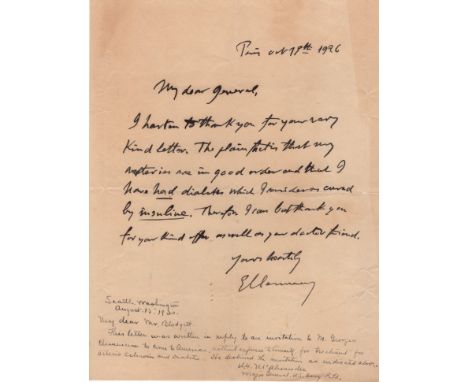 Paris Oct 18th 1926
My dear General,
I hasten to thank you for your very
kind letter. The plain fact is that my
arteries are in good order and that I
have had diabetes which I consider as cured
by insuline. Therefore I can but thank you
for your kind offer as well as your doctor friend.
Yours heartily
Seattle Washington
August 12,
My dear Mr. Blodgett
This letter was written in reply to an invitation to M. Georges
Clemenceau to come to America, without expense to himself, for treatment for
arterio sclerosis and diabetes. He declined the invitation as indicated above.
Major General U.S. Army Retd.